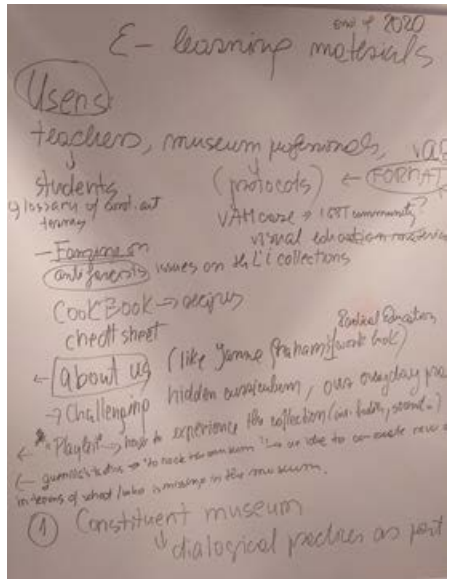 end of 2020
E-learning materials
Users:
teachers, museum professionals,
↓ ↓
students (protocols) ← FORMAT
glossary of cont. art
terms VAM case → LGBT community?
visual education
- issues on the L'i collections
CookBook → recipes
cheat sheet
Radical Education
← about us (like Janna Graham's work book)
→ Challenging hidden curriculum, our everyday
← "Playlist" → how to experience the collection
→ "to hack the museum" →
in terms of what/who is missing in the museum.
① Constituent museum
↓ dialogical practices as part